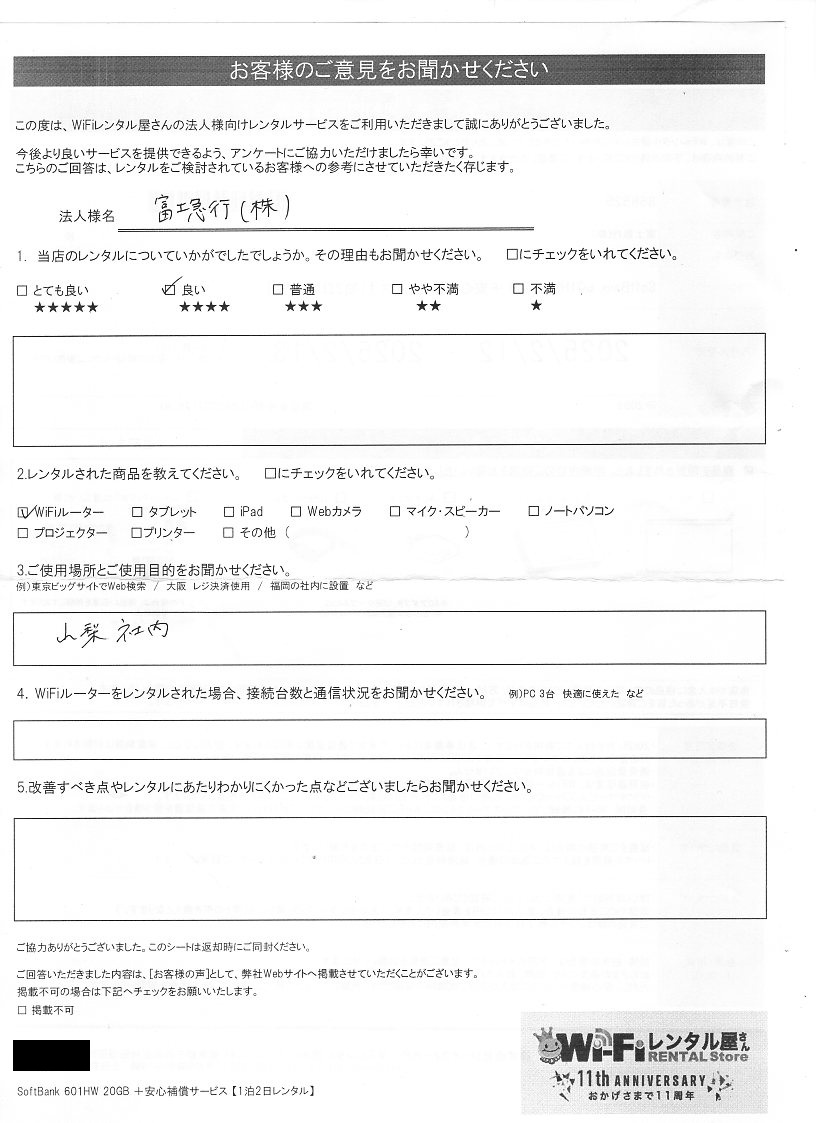 お客様のご意見をお聞かせください
この度は、WiFiレンタル屋さんの法人様向けレンタルサービスをご利用いただきまして誠にありがとうございました。
今後より良いサービスを提供できるよう、アンケートにご協力いただけましたら幸いです。
こちらのご回答は、レンタルをご検討されているお客様への参考にさせていただきたく存じます。
法人様名 富士急行(株)
1. 当店のレンタルについていかがでしたでしょうか。その理由もお聞かせください。 □にチェックをいれてください。
□ とても良い ☑ 良い □ 普通 □ やや不満 □ 不満
★★★★★ ★★★★ ★★★ ★★ ★
2.レンタルされた商品を教えてください。 □にチェックをいれてください。
☑ WiFiルーター □ タブレット □ iPad □ Webカメラ □ マイク・スピーカー □ ノートパソコン
□ プロジェクター □プリンター □ その他 ( )
3.ご使用場所とご使用目的をお聞かせください。
例)東京ビッグサイトでWeb検索 / 大阪 レジ決済使用 / 福岡の社内に設置 など
山梨 社内
4. WiFiルーターをレンタルされた場合、接続台数と通信状況をお聞かせください。 例)PC 3台 快適に使えた など
5.改善すべき点やレンタルにあたりわかりにくかった点などございましたらお聞かせください。
ご協力ありがとうございました。このシートは返却時にご同封ください。
ご回答いただきました内容は、[お客様の声]として、弊社Webサイトへ掲載させていただくことがございます。
掲載不可の場合は下記へチェックをお願いいたします。
□ 掲載不可
Wi-Fiレンタル屋さん
RENTAL Store
11th ANNIVERSARY
おかげさまで11周年
SoftBank 601HW 20GB +安心補償サービス【1泊2日レンタル】